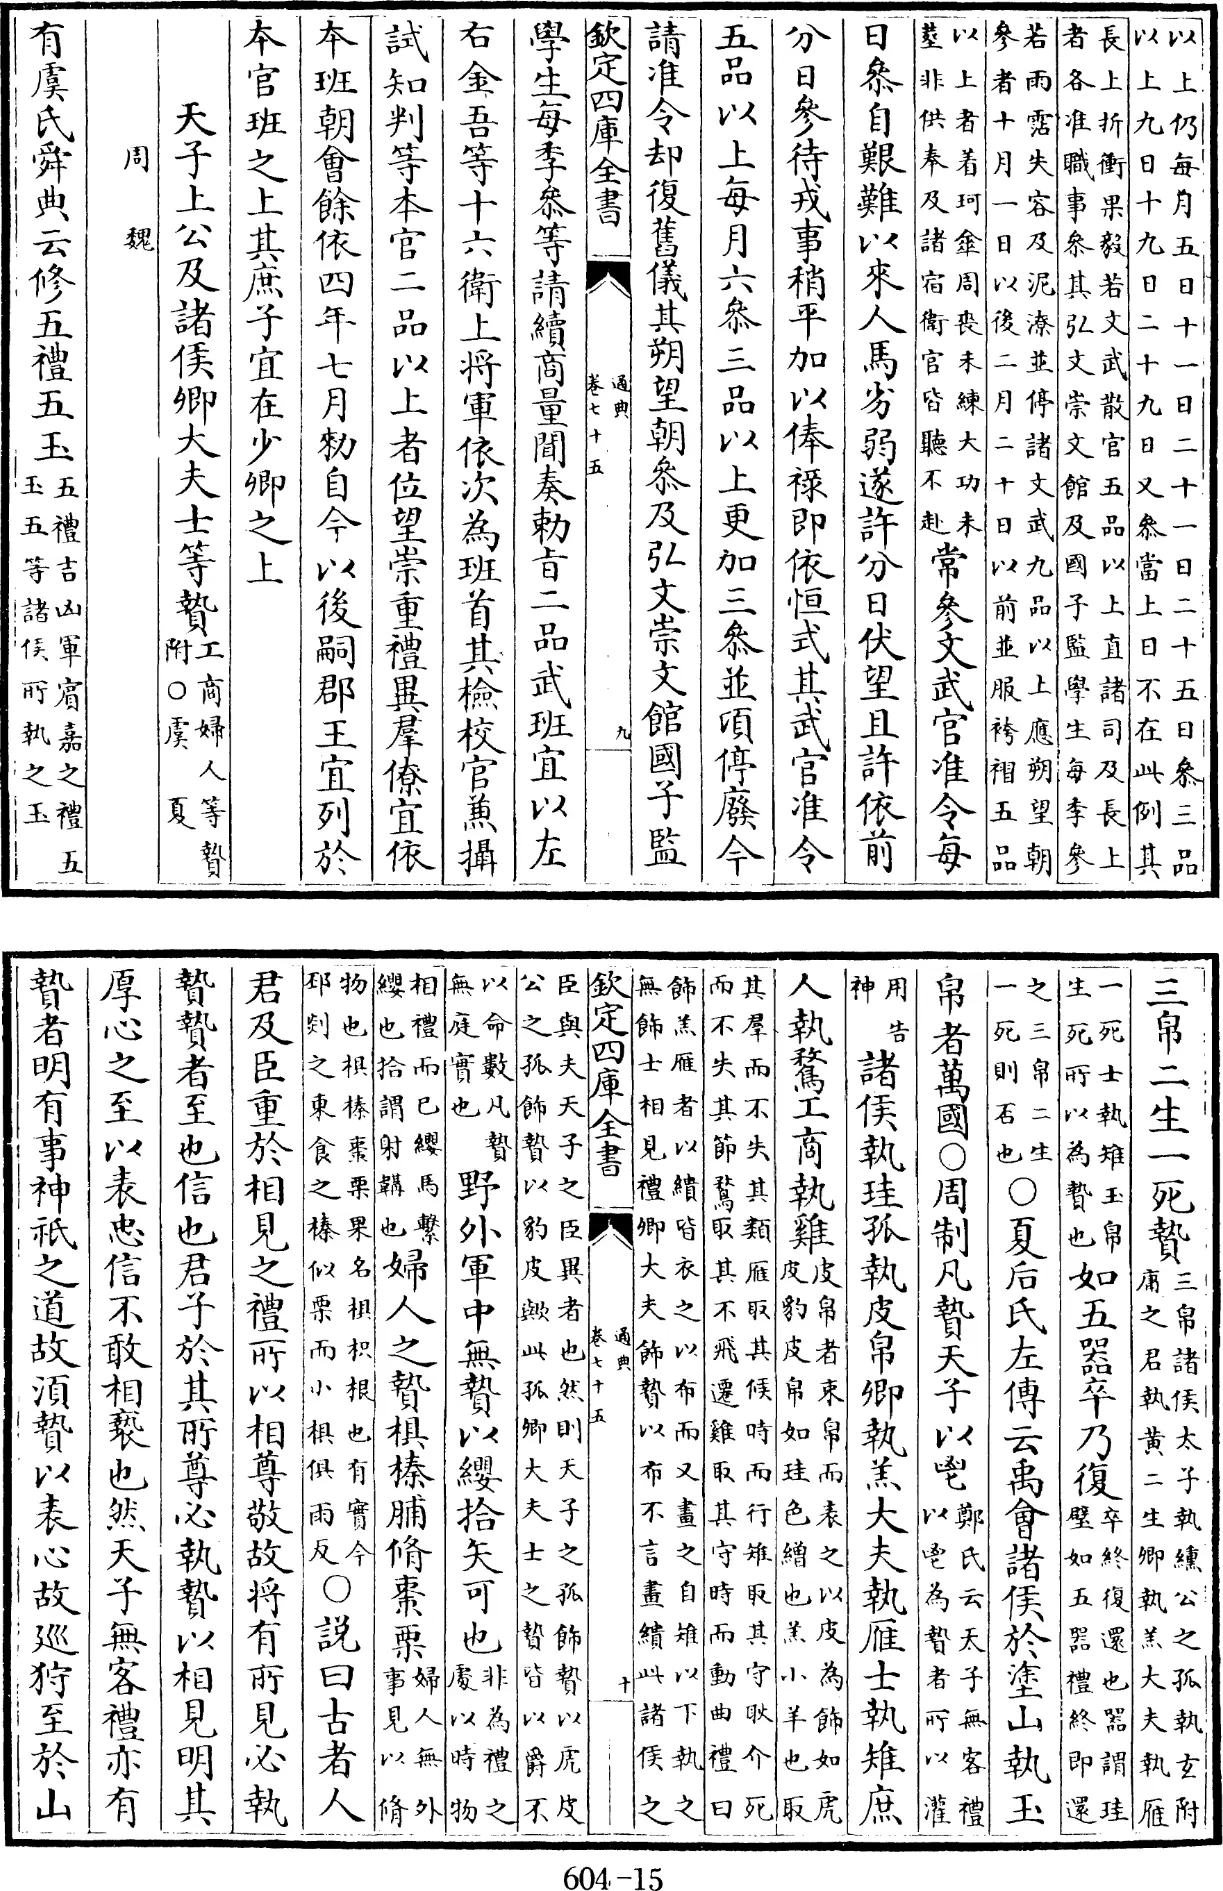 以上仍每月五日十一日二十一日二十五日參三品
以上九日十九日二十九日又參當上日不在此例其
長上折衝果毅若文武散官五品以上直諸司及長上
者各准職事參其弘文崇文館及國子監學生每季參
若雨霑失容及泥潦並停諸文武九品以上應朔望朝
參者十月一日以後二月二十日以前並服袴褶五品
以上者着珂傘周喪未練大功未塟非供奉及諸宿衛官皆聽不赴常參文武官准令每
日叅自艱難以來人馬劣弱遂許分日伏望且許依前
分日參待戎事稍平加以俸祿即依恒式其武官准令
五品以上每月六叅三品以上更加三叅並項停廢今
請准令却復舊儀其朔望朝叅及弘文崇文館國子監
欽定四庫全書
通典
卷七十五
九
學生每季叅等請續商量聞奏勅㫖二品武班宜以左
右金吾等十六衛上將軍依次為班首其檢校官兼攝
試知判等本官二品以上者位望崇重禮異羣僚宜依
本班朝會餘依四年七月勑自今以後嗣郡王宜列於
本官班之上其庶子宜在少卿之上
天子上公及諸侯卿大夫士等贄工商婦人等贄附○虞 夏
周 魏
有虞氏舜典云修五禮五玉五禮吉凶軍賔嘉之禮五玉五等諸侯所執之玉
三帛二生一死贄三帛諸侯太子執纁公之孤執玄附庸之君執黃二生卿執羔大夫執雁
一死士執雉玉帛生死所以為贄也如五器卒乃復卒終復還也器謂珪璧如五器禮終即還
之三帛二生一死則否也○夏后氏左傳云禹會諸侯於塗山執玉
帛者萬國○周制凡贄天子以鬯鄭氏云天子無客禮以鬯為贄者所以灌
用告神諸侯執珪孤執皮帛卿執羔大夫執雁士執雉庶
人執鶩工商執雞皮帛者束帛而表之以皮為飾如虎皮豹皮帛如珪色繒也羔小羊也取
其羣而不失其類雁取其候時而行雉取其守耿介死
而不失其節鶩取其不飛遷雞取其守時而動曲禮曰
飾羔雁者以繢皆衣之以布而又畫之自雉以下執之
無飾士相見禮卿大夫飾贄以布不言畫繢此諸侯之
欽定四庫全書
通典
卷七十五
十
臣與夫天子之臣異者也然則天子之孤飾贄以虎皮
公之孤飾贄以豹皮與此孤卿大夫士之贄皆以爵不
以命數凡贄無庭實也野外軍中無贄以纓拾矢可也非為禮之處以時物
相禮而已纓馬繫纓也拾謂射韝也婦人之贄椇榛脯脩棗栗婦人無外事見以脩
物也椇榛棗栗果名椇枳椇也有實今邳剡之東食之榛似栗而小椇俱雨反○説曰古者人
君及臣重於相見之禮所以相尊敬故將有所見必執
贄贄者至也信也君子於其所尊必執贄以相見明其
厚心之至以表忠信不敢相䙝也然天子無客禮亦有
贄者明有事神祇之道故須贄以表心故廵狩至於山
604-15